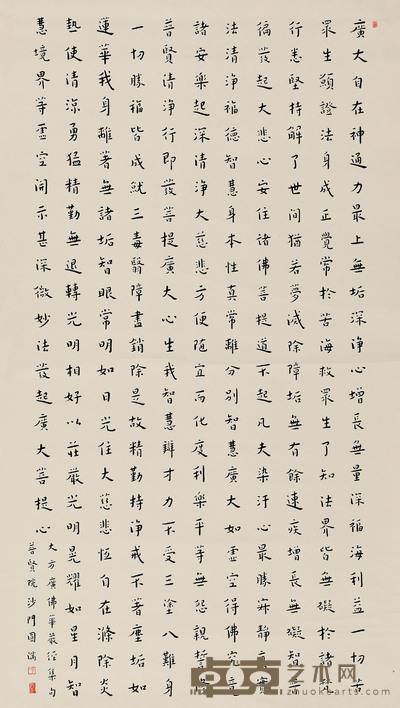 廣大自在神通力最上無垢深淨心增長無量深福海利益一切苦
眾生願證法身成正覺常於苦海救眾生了知法界皆無礙於諸
行悉堅持解了世間猶若夢滅除障垢無有餘速疾增長無礙智
徧發起大悲心安住諸佛菩提道不起凡夫染汙心最勝寂靜真實
法清淨福德智慧身本性真常離分別智慧廣大如虛空得佛究竟
諸安樂起深清淨大慈悲方便隨宜而化度利樂平等無怨親誓
普賢清淨行即發菩提廣大心生我智慧辯才力不受三塗八難身
一切勝福皆成就三毒翳障盡銷除是故精勤持淨戒不著塵垢如
蓮華我身離著無諸垢智眼常明如日光住大慈悲恆自在滌除炎
熱使清涼勇猛精勤無退轉光明相好以莊嚴光明晃耀如星月知
慧境界等虛空開示甚深微妙法發起廣大菩提心
大方廣佛華嚴經集句
普賢院沙門圓
卓克艺术网
zhuokearts.com